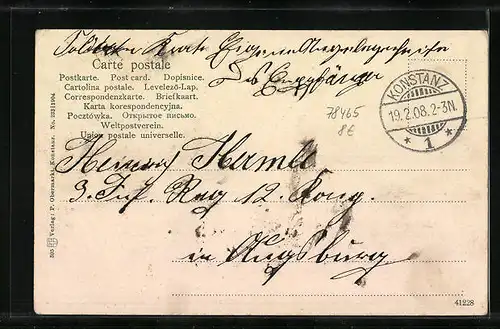 Soldaten Karte Eigene Angelegenheiten
Des Empfänger
Carte postale
Postkarte. Post card. Dopisnice.
Cartolina postale. Levelező-Lap.
Correspondenzkarte. Briefkaart.
Karta korespondencyjna.
Pocztówka. Открытое письмо.
Weltpostverein.
Union postale universelle.
KONSTANZ
19.2.08.2-3N.
* 1 *
78465
8€
Herrn
3. Inf. Reg 12. Komg.
in Augsburg
Verlag: P. Obermarkt, Konstanz. No.
41228